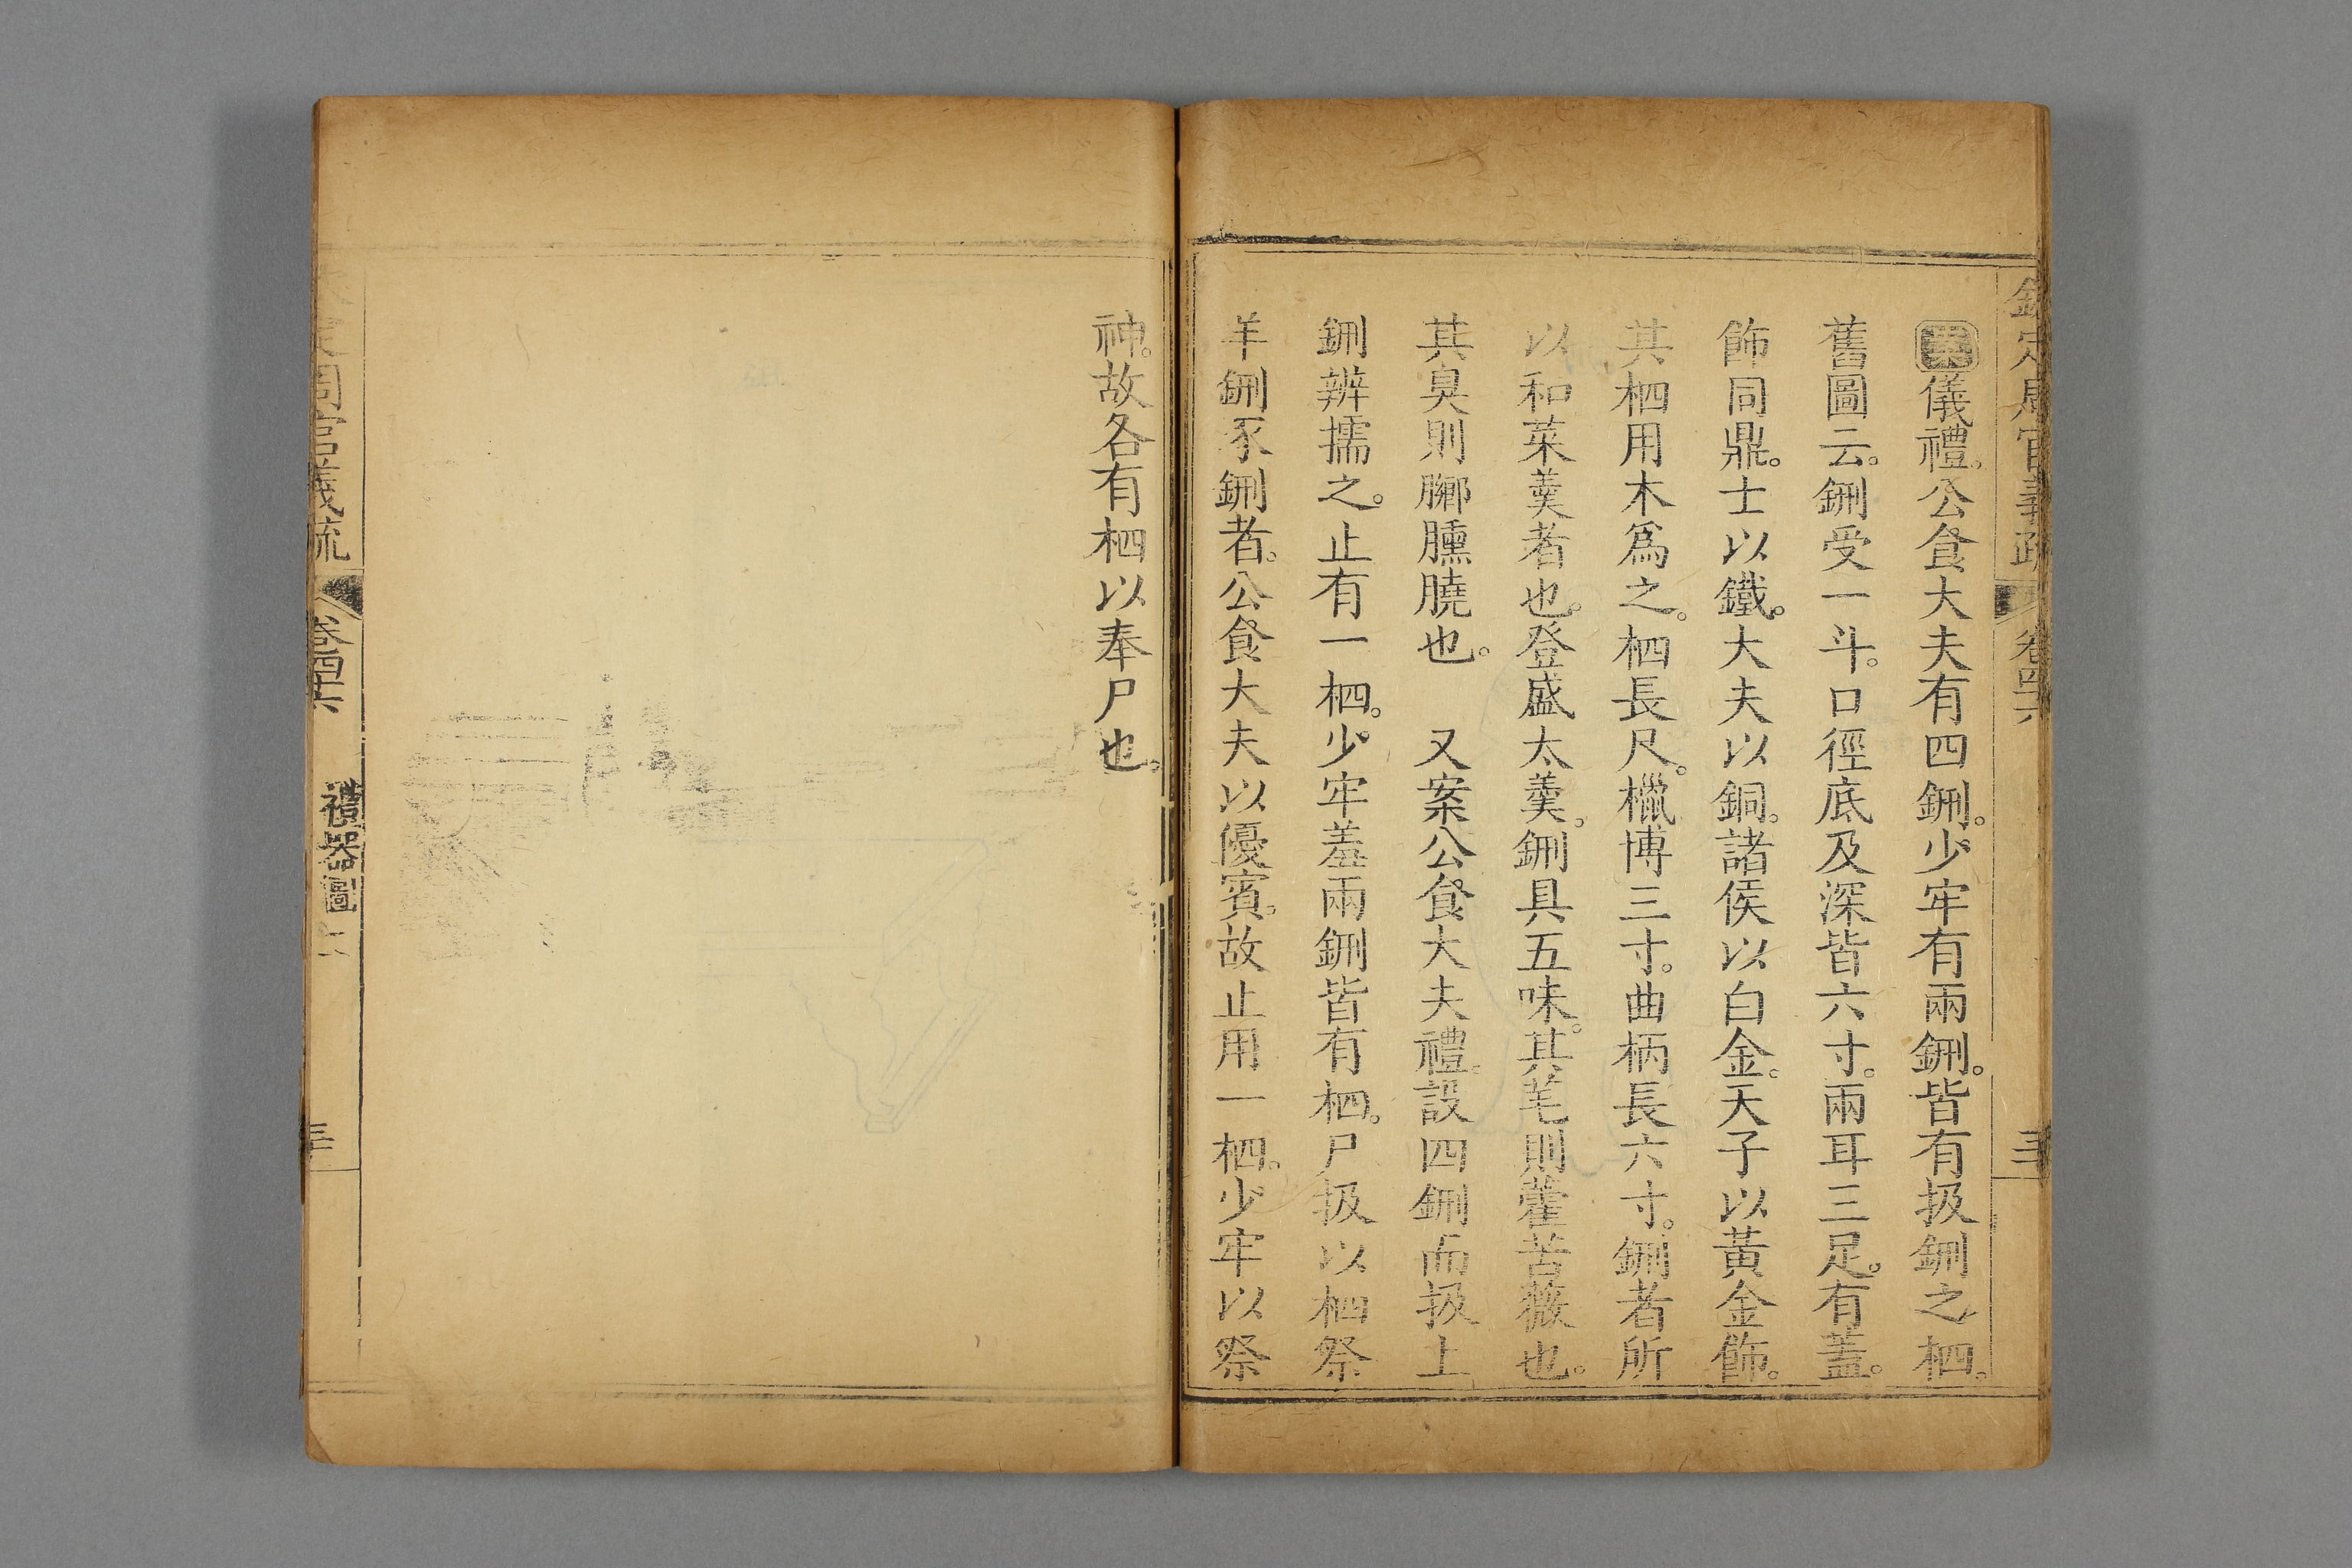 欽定周官義疏 卷四十六
案儀禮。公食大夫有四鉶。少牢有兩鉶。皆有扱鉶之柶。
舊圖云。鉶受一斗。口徑底及深皆六寸。兩耳三足。有蓋。
飾同鼎。士以鐵。大夫以銅。諸侯以白金。天子以黃金飾。
其柶用木爲之。柶長尺。欇博三寸。曲柄長六寸。鉶者所
以和菜羹者也。登盛太羹。鉶具五味。其芼則藿苦薇也。
其臭則膷臐膮也。 又案公食大夫禮。設四鉶而扱上
鉶辨擩之。止有一柶。少牢羞兩鉶皆有柶。尸扱以柶祭
羊鉶豕鉶者。公食大夫以優賓。故止用一柶。少牢以祭
神。故各有柶以奉尸也。
周官義疏 卷四十六 禮器圖